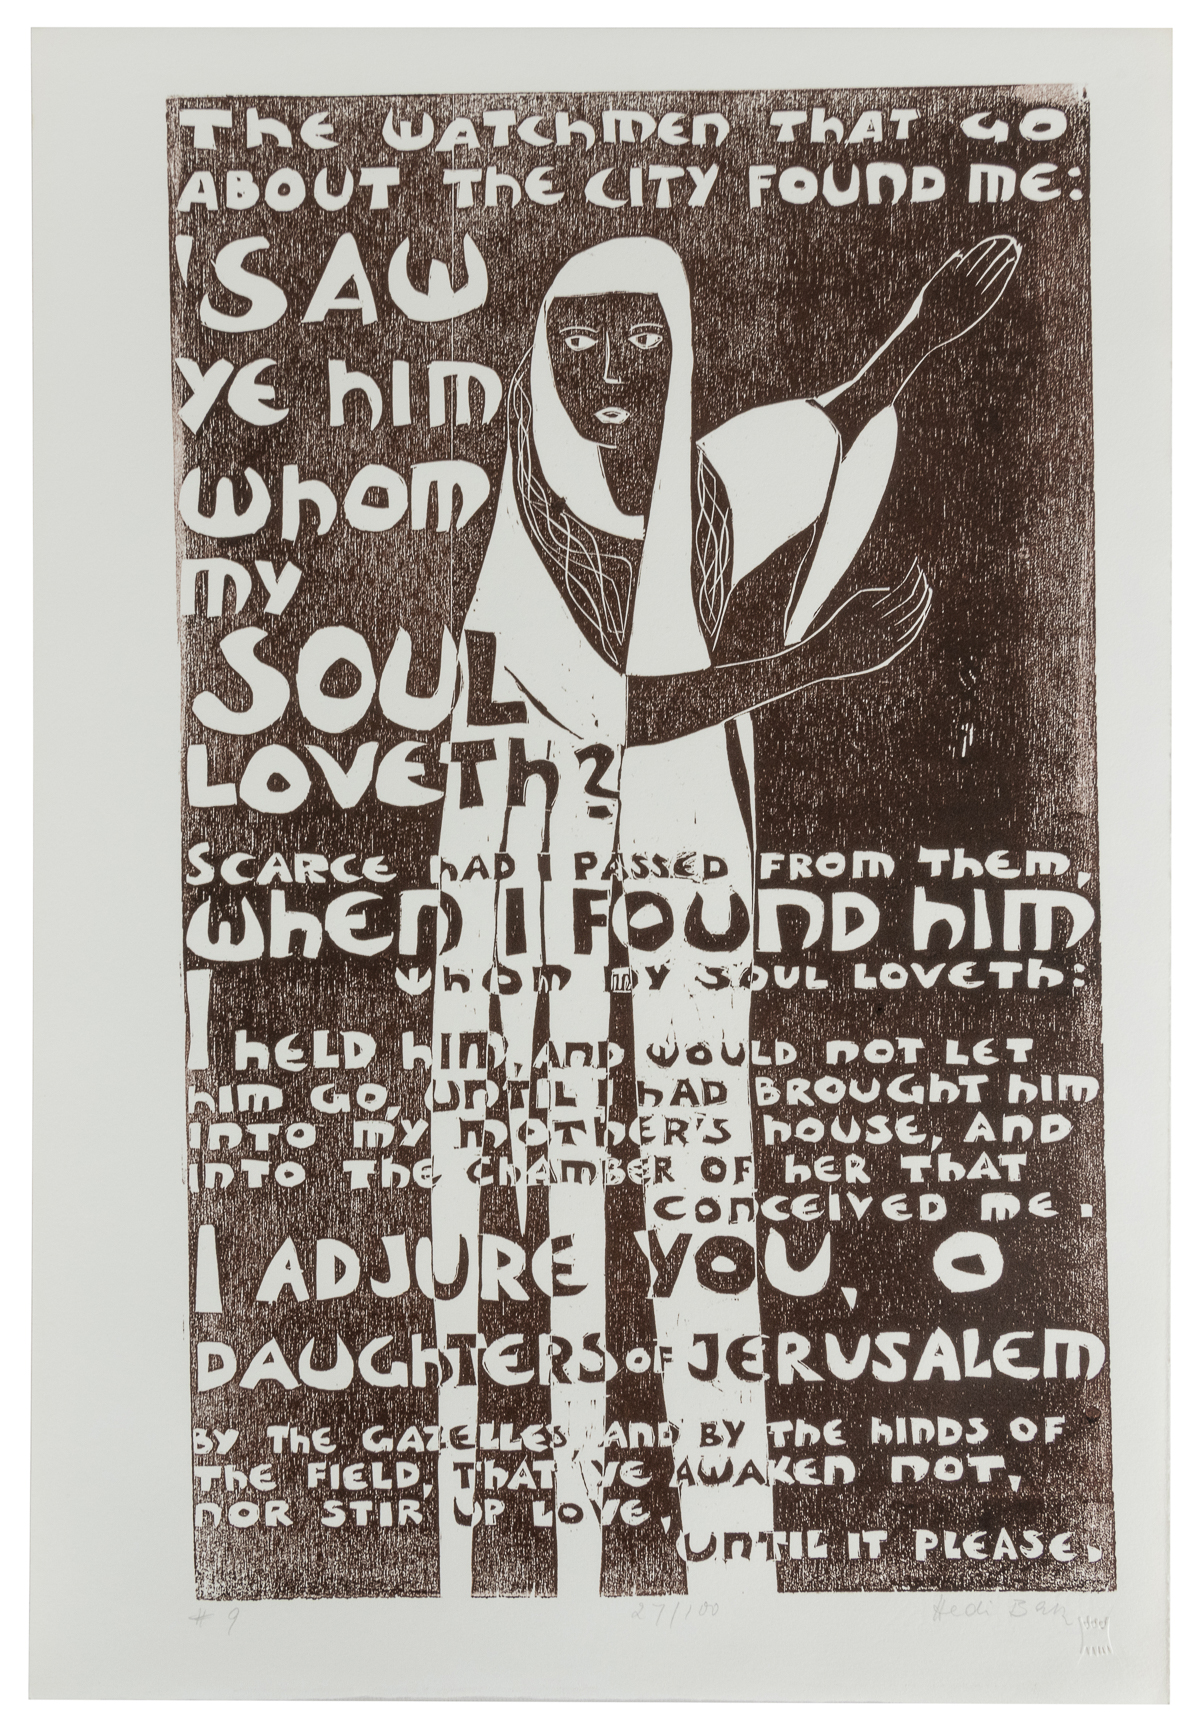 The watchmen that go
about the city found me:
'Saw
ye him
whom
my
soul
loveth?
Scarce had I passed from them,
when I found him
whom my soul loveth:
I held him, and would not let
him go, until I had brought him
into my mother's house, and
into the chamber of her that
conceived me.
I adjure you, O
daughters of Jerusalem
by the gazelles, and by the hinds of
the field, that ye awaken not,
nor stir up love,
until it please.
# 9 27/100 Hedi Bak